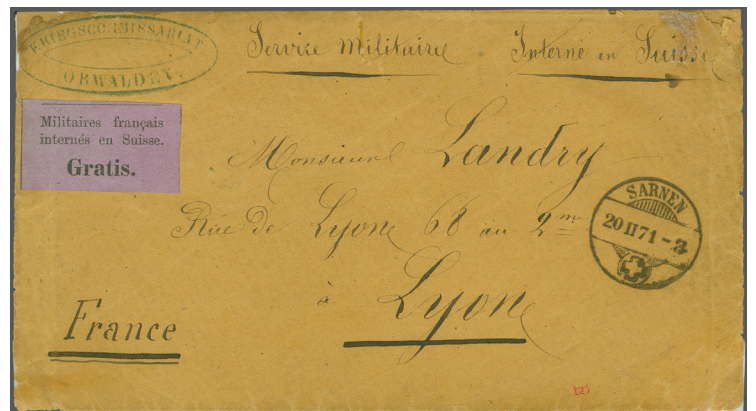 KRIEGSCOMMISSARIAT
OBWALDEN.
Service Militaire Interné en Suisse
Militaires français
internés en Suisse.
Gratis.
Monsieur Landry
Rue de Lyon 68 au 2me
à Lyon
France
SARNEN
20 II 71 - 3